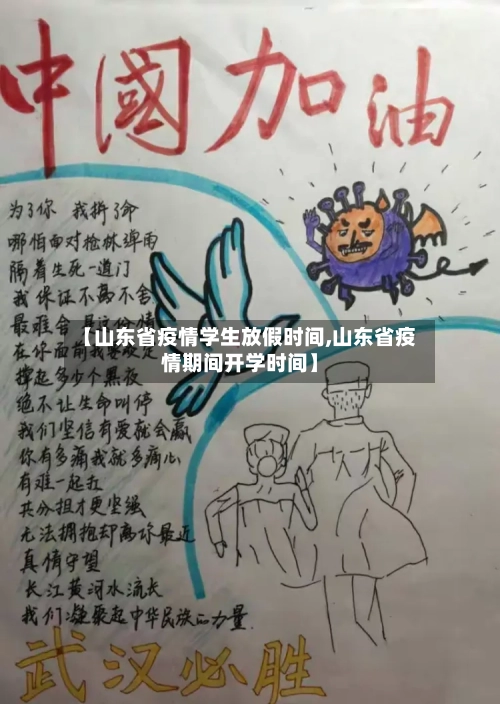 中國加油
为了你 我拼了命
哪怕面对枪林弹雨
隔着生死一道门
我保证不离不舍
最难舍
【山东省疫情学生放假时间,山东省疫
情期间开学时间】
在你面前我
撑起多少个黑夜
绝不让生命叫停
我们坚信有爱就会赢
你有多痛我就多痛心
有难一起扛
共分担才更坚强
无法拥抱却离你最近
真情守望
长江黄河水流长
我们凝聚起中华民族的力量.
武汉必胜